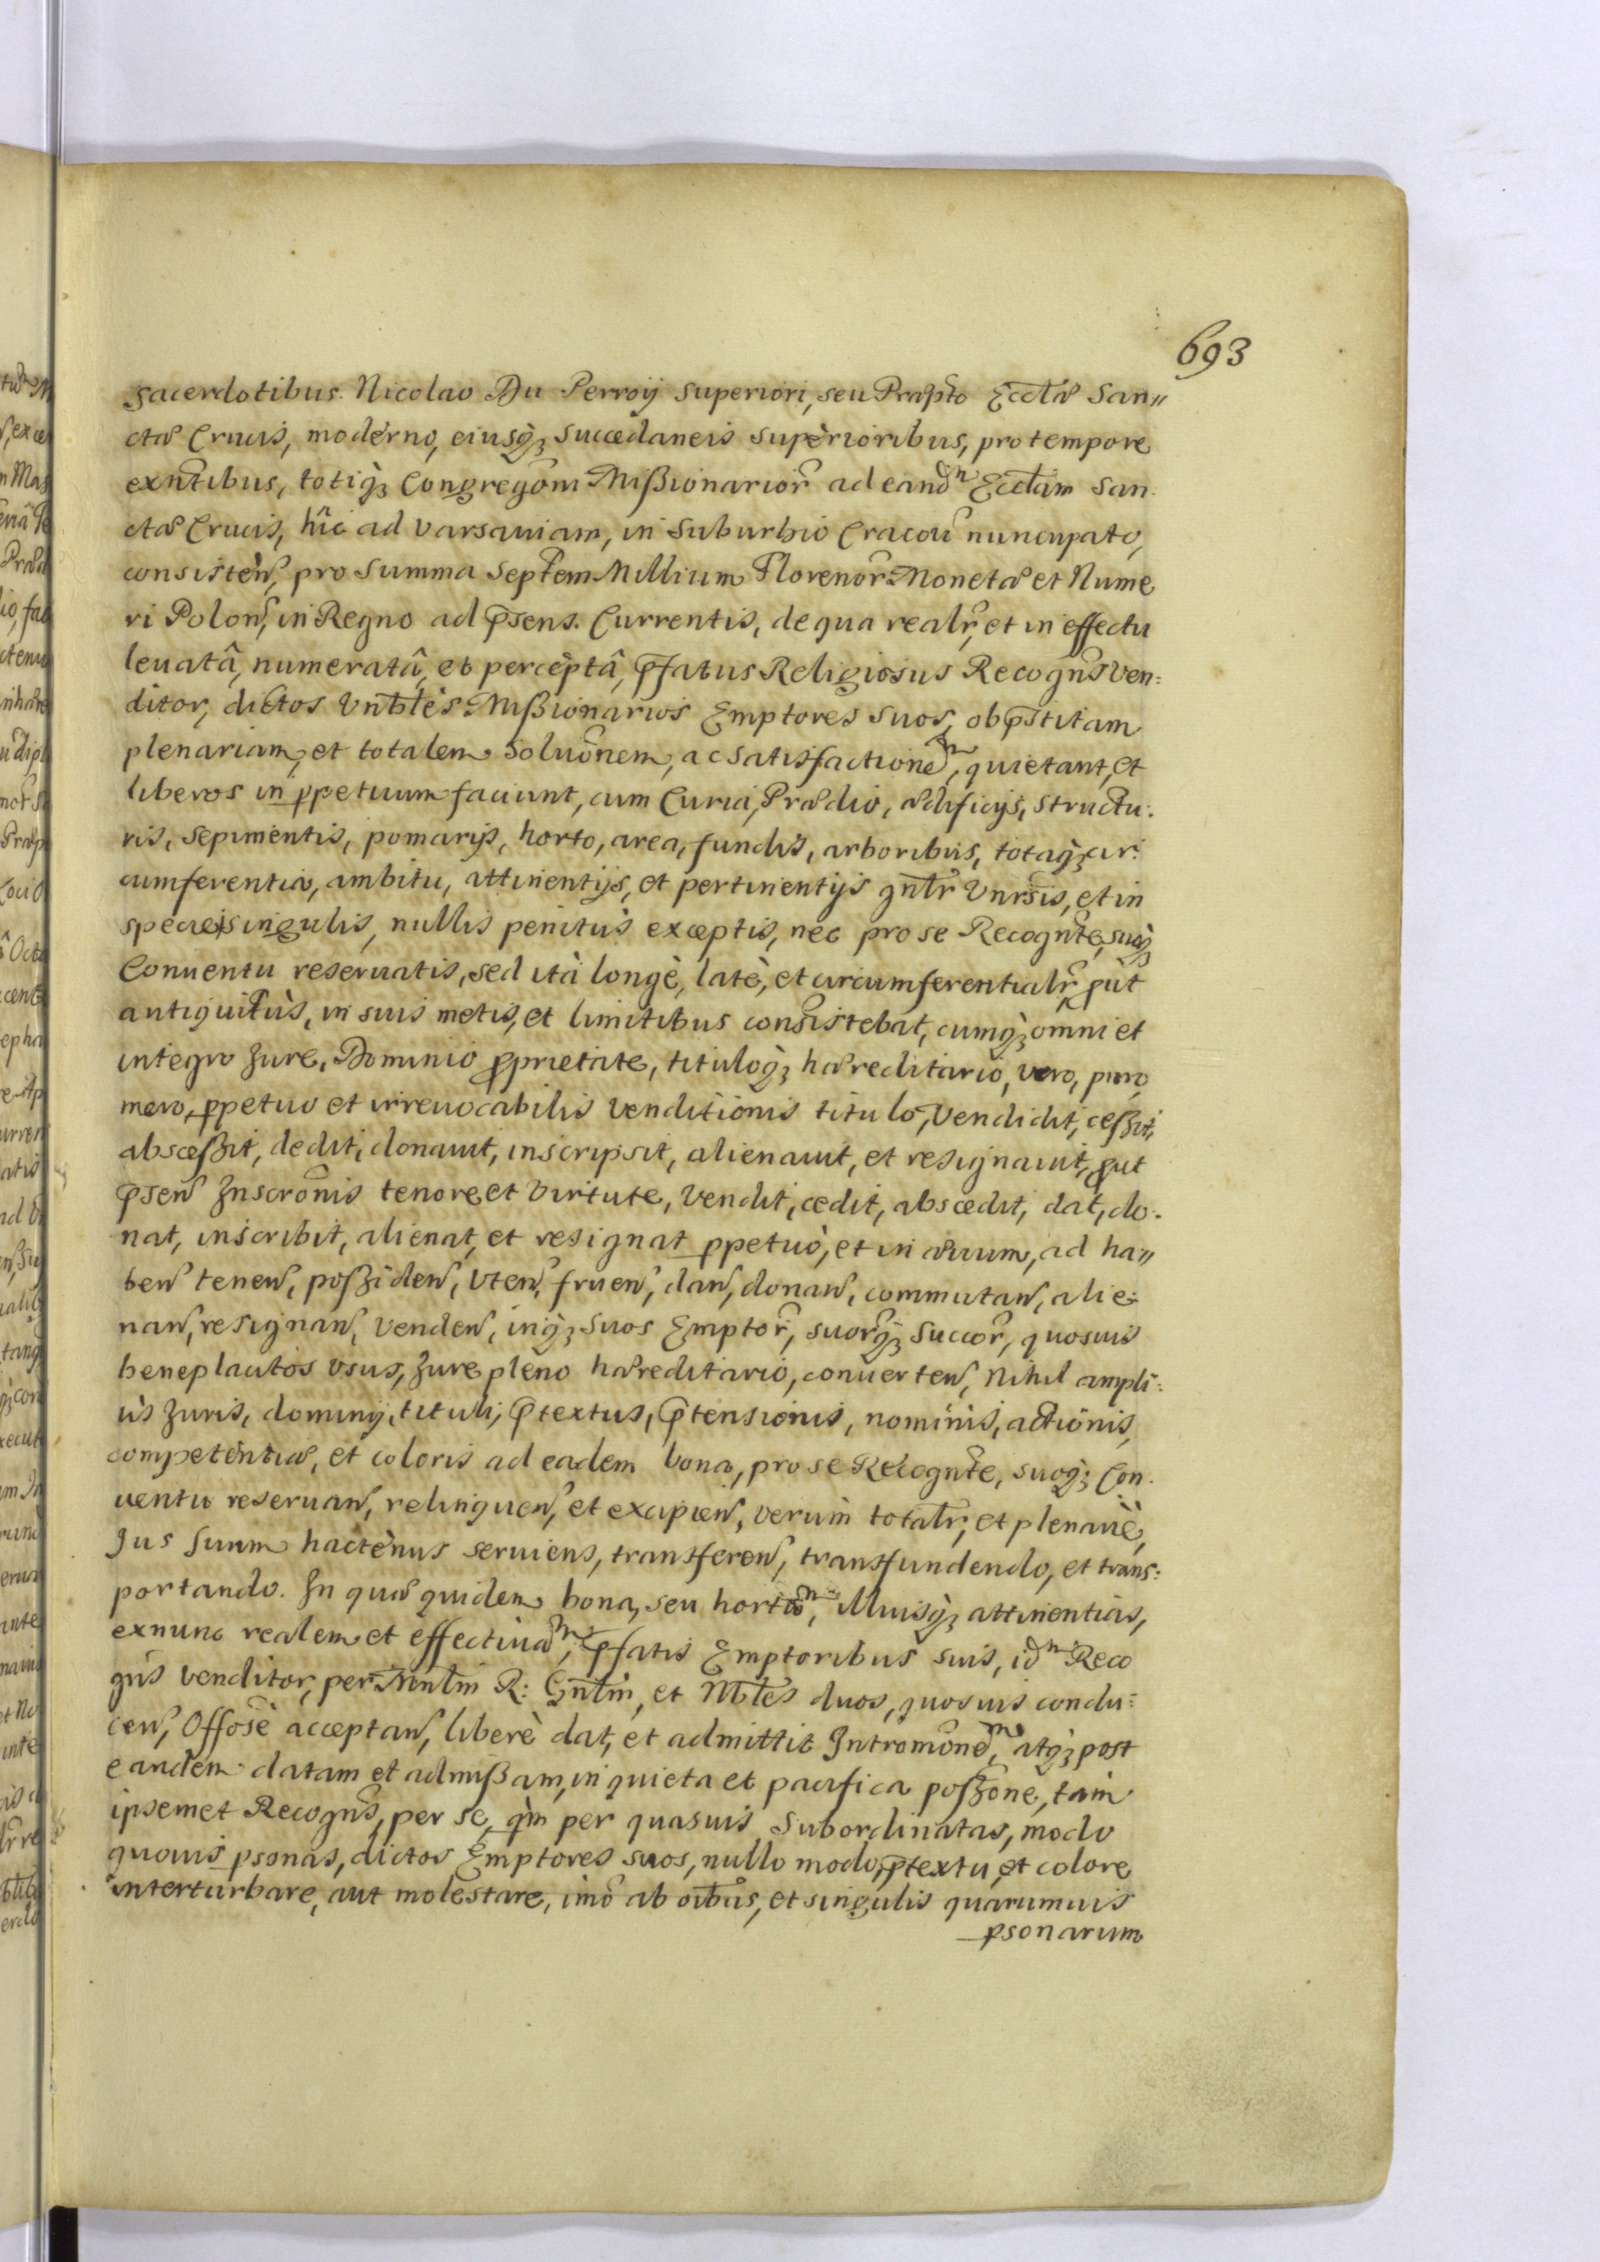 693
Sacerdotibus. Nicolao Du Perroy Superiori, seu Præpto Ecclæ San//
ctæ Crucis, moderno, eiusq; succedaneis superioribus, pro tempore
exntibus, totiq; Congregõni Mißionarior ad eandm Ecclam San
ctæ Crucis, hîc ad Varsauiam, in Suburbio Cracou nuncupato,
consisten, pro summa Septem Millium Florenor Monetæ et Nume
ri Polon, in Regno ad p̃sens. Currentis, de qua realr, et in effectu
leuatâ, numeratâ, et perceptâ, p̃fatus Religiosus Recogns Ven:
ditor, dictos Vnbles Mißionarios Emptores suos, ob p̃stitam
plenariam, et totalem Soluõnem, ac satisfactionem, quietant, et
liberos in ppetuum faciunt, cum Curia, Prædio, ædificijs, structu.
ris, sepimentis, pomarijs, horto, area, fundis, arboribus, totaq; cir:
cumferentia, ambitu, attinentijs, et pertinentijs gnlr Vnrsis, et in
specie singulis, nullis penitùs exceptis, nec pro se Recognte, suoq;
Conuentu reseruatis, sed ità longè, latè, et circumferentialr, put
antiquitùs, in suis metis, et limitibus consistebat, cumq; omni et
integro Jure, Dominio pprietate, tituloq; hæreditario, vero, puro,
mero, ppetuo et irreuocabilis Venditionis titulo, Vendidit, ceßit,
absceßit, dedit, donauit, inscripsit, alienauit, et resignauit, put
p̃sen Inscrõnis tenore et Virtute, Vendit, cedit, abscedit, dat, do.
nat, inscribit, alienat, et resignat ppetuò, et in æuum, ad ha//
ben tenen, poßiden, Vten, fruen, dan, donan, commutan, alie:
nan, resignan, Venden, inq; suos Emptor, suorq; Succor, quosuis
beneplacitos vsus, Jure pleno hæreditario, conuerten, Nihil ampli:
ùs Juris, dominij, tituli, p̃textus, p̃tensionis, nominis, actionis,
competentiæ, et coloris ad eadem bona, pro se Recognte, suoq; Con.
uentu reseruan, relinquen, et excipien, verùm totalr, et plenariè,
Jus suum hactenus seruiens, transferen, transfundendo, et trans:
portando. In quæ quidem bona, seu hortum, illiusq; attinentias,
exnunc realem et effectiuam, p̃fatis Emptoribus suis, idm Reco
gns Venditor, per Mntlm R: Gnlm, et Nbles duos, quosuis condu:
cen, Offosè acceptan, liberè dat, et admittit Intromõnem, atq; post
eandem datam et admißam, in quieta et pacifica poßõne, tam
ipsemet Recogns, per se, qm per quasuis Subordinatas, modo
quouis psonas, dictos Emptores suos, nullo modo, p̃textu, et colore
interturbare, aut molestare, imò ab oibus, et singulis quarumuis
psonarum